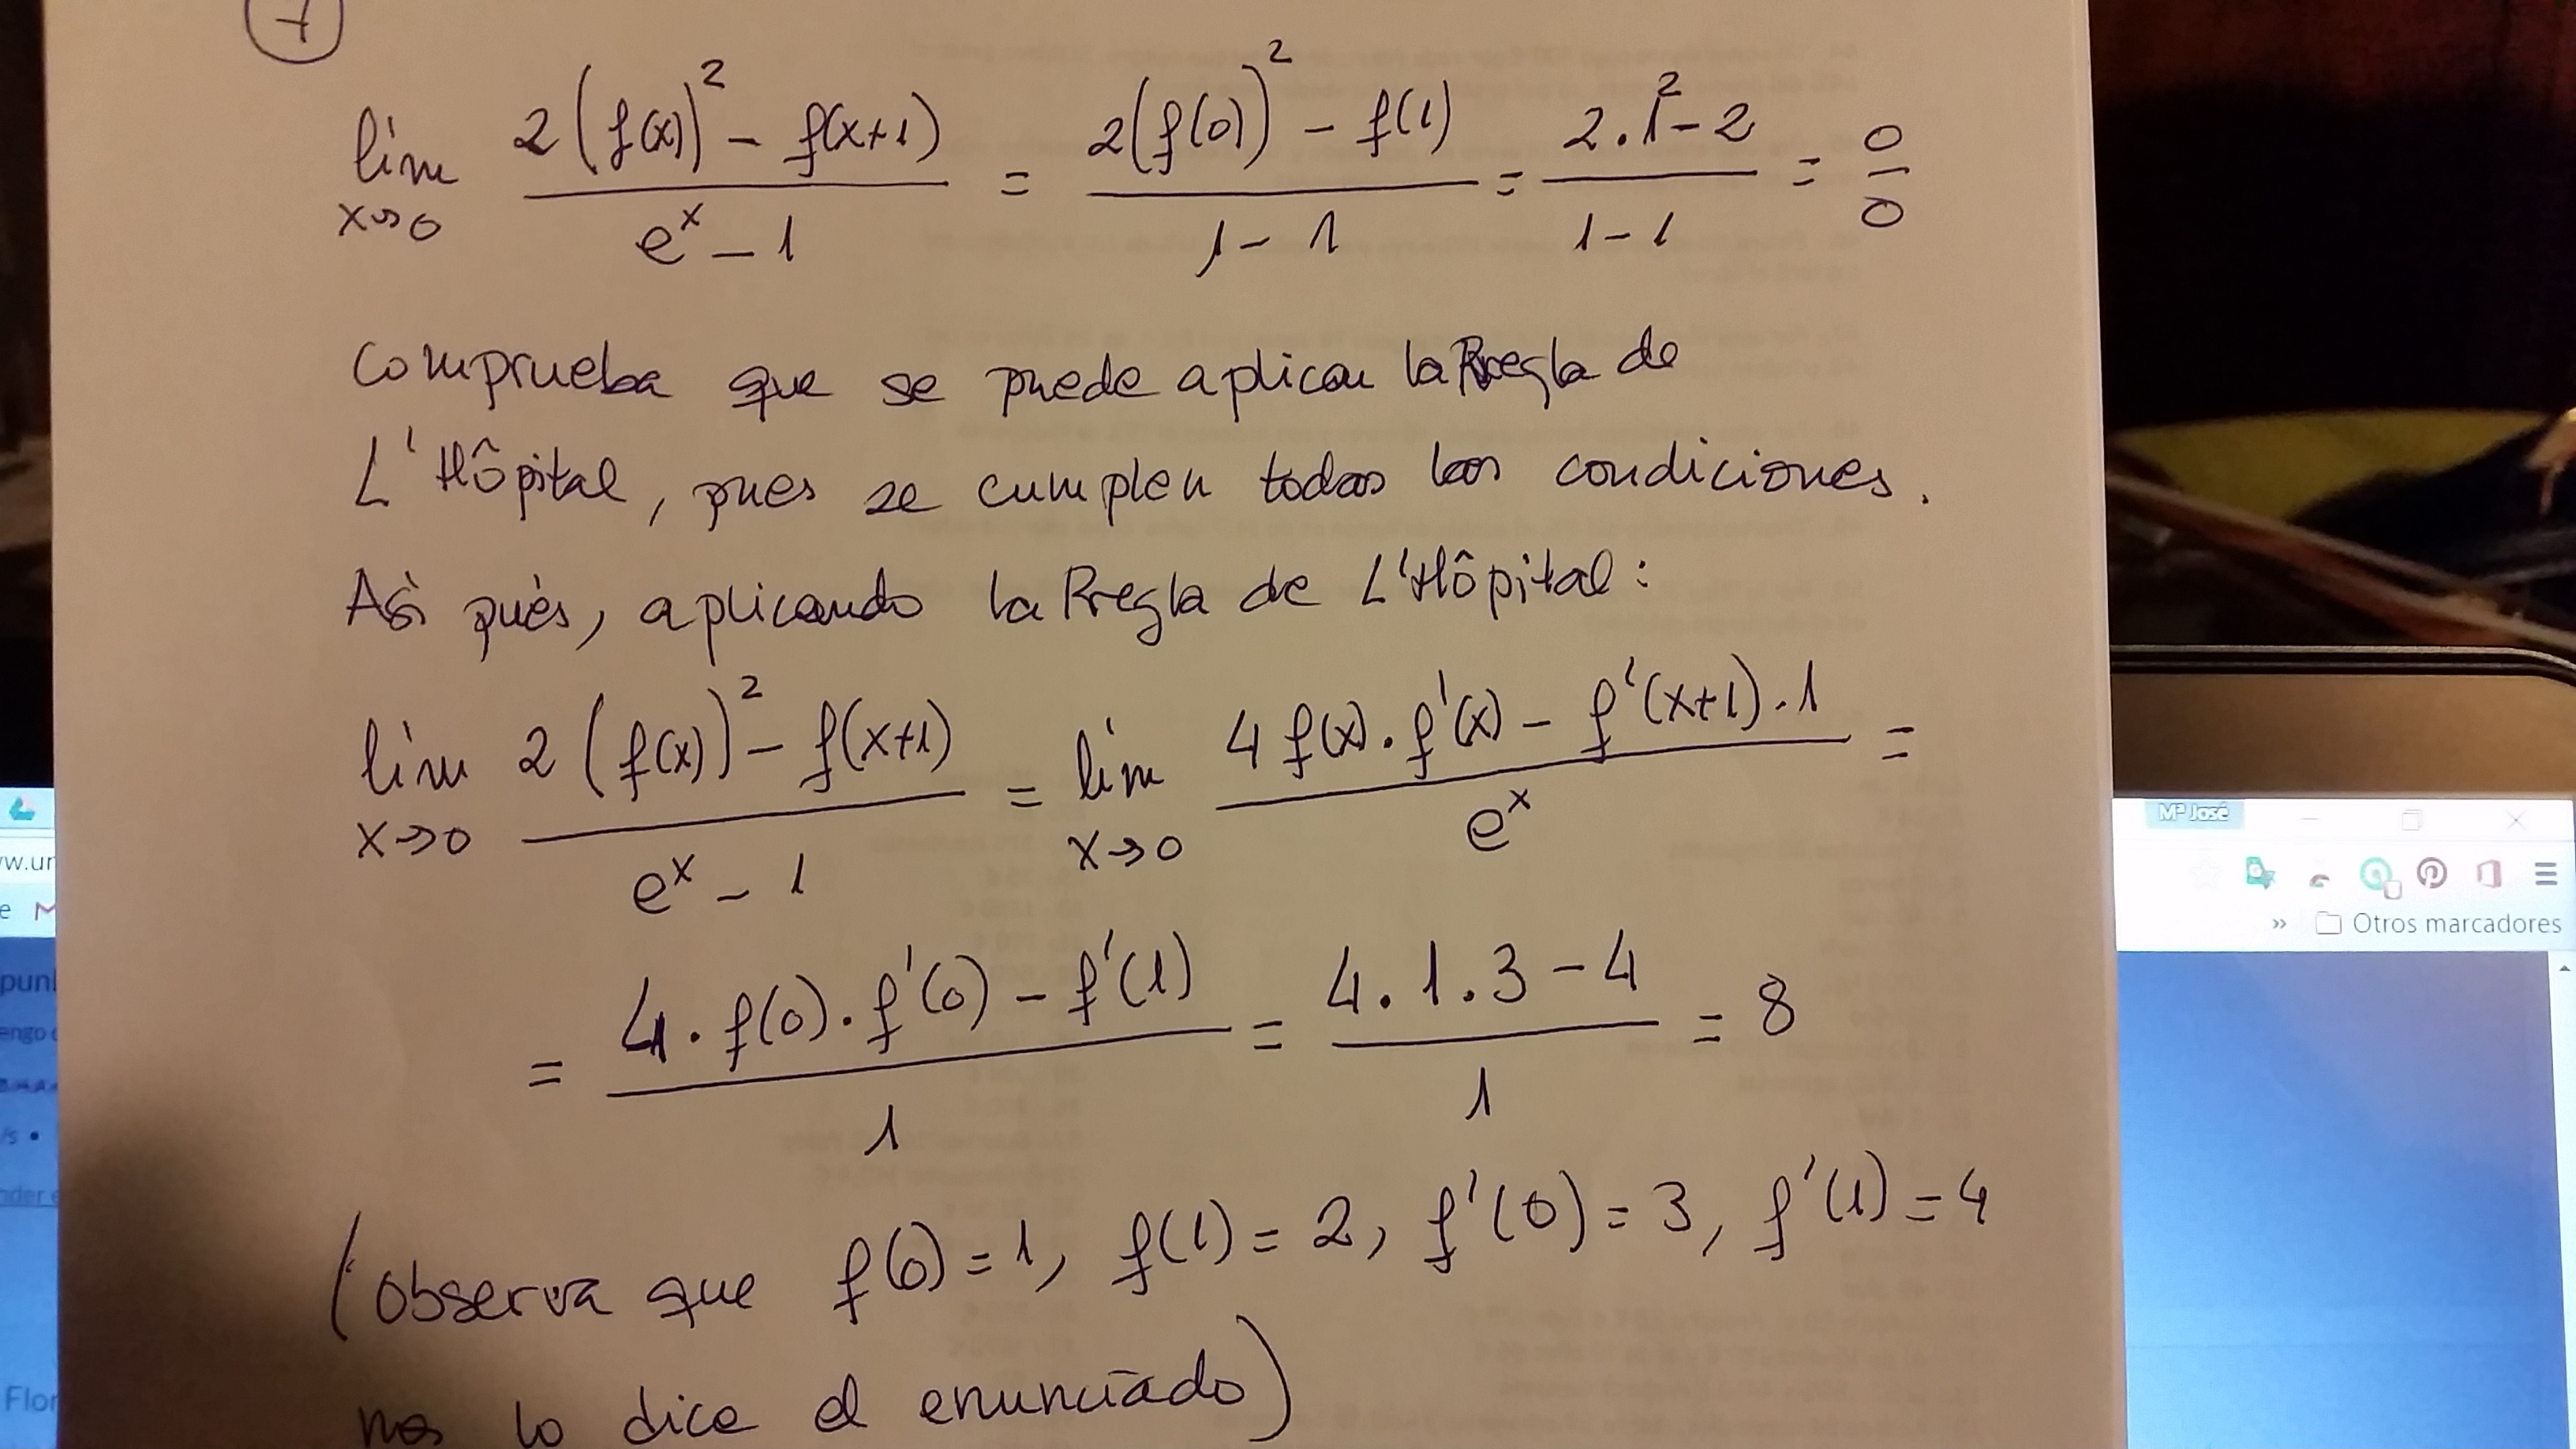 lim x→0 (2(f(x))² - f(x+1))/(eˣ - 1) = (2(f(0))² - f(1))/(1 - 1) = (2.1² - 2)/(1 - 1) = 0/0
Comprueba que se puede aplicar la Rregla de
L'Hôpital, pues se cumplen todas las condiciones.
Así pués, aplicando la Rregla de L'Hôpital:
lim x→0 (2(f(x))² - f(x+1))/(eˣ - 1) = lim x→0 (4 f(x) . f'(x) - f'(x+1) . 1)/eˣ =
= (4 . f(0) . f'(0) - f'(1))/1 = (4 . 1 . 3 - 4)/1 = 8
(observa que f(0) = 1, f(1) = 2, f'(0) = 3, f'(1) = 4
nos lo dice el enunciado)
Mª José
» Otros marcadores